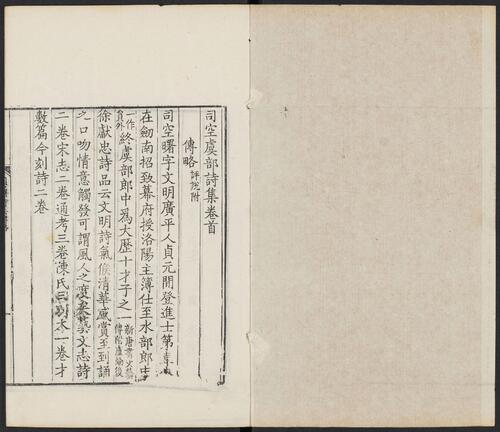 司空虞部詩集卷首
傳略 評註附
司空曙字文明廣平人貞元間登進士第韋
在劒南招致幕府授洛陽主簿仕至水部郎中
一作員外終虞部郎中爲大歷十才子之一新唐書文藝傳附盧綸後
徐獻忠詩品云文明詩氣候清華感賞至到誦
之口吻情意觸發可謂風人之度矣藝文志詩
二卷宋志二卷通考三卷陳氏云別本一卷才
數篇今刻詩二卷